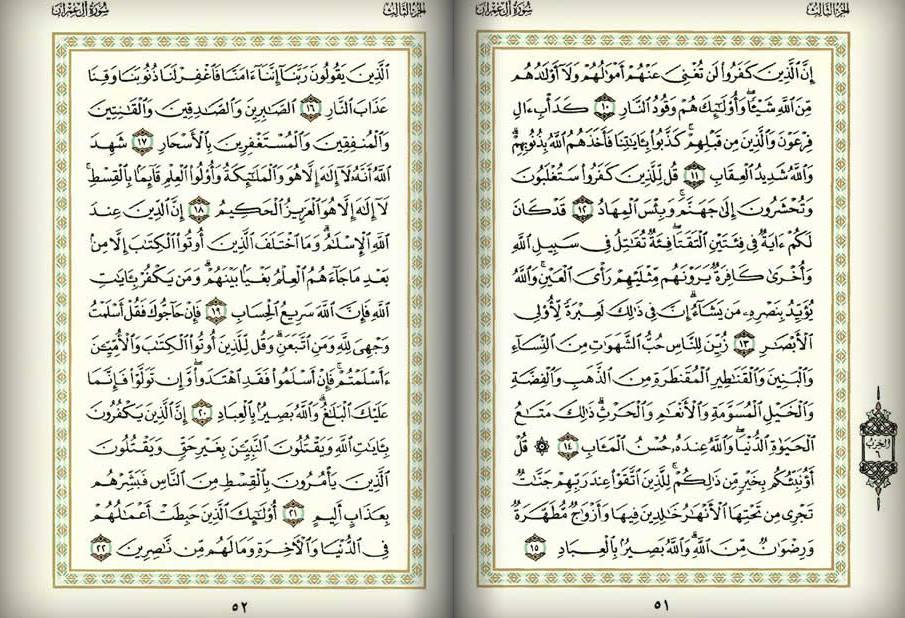 الجزء الثالث
سورة آل عمران
إِنَّ ٱلَّذِينَ كَفَرُوا۟ لَن تُغْنِىَ عَنْهُمْ أَمْوَٰلُهُمْ وَلَآ أَوْلَـٰدُهُم
مِّنَ ٱللَّهِ شَيْـًٔا ۖ وَأُو۟لَـٰٓئِكَ هُمْ وَقُودُ ٱلنَّارِ ١٠ كَدَأْبِ ءَالِ
فِرْعَوْنَ وَٱلَّذِينَ مِن قَبْلِهِمْ ۚ كَذَّبُوا۟ بِـَٔايَـٰتِنَا فَأَخَذَهُمُ ٱللَّهُ بِذُنُوبِهِمْ ۗ
وَٱللَّهُ شَدِيدُ ٱلْعِقَابِ ١١ قُل لِّلَّذِينَ كَفَرُوا۟ سَتُغْلَبُونَ
وَتُحْشَرُونَ إِلَىٰ جَهَنَّمَ ۚ وَبِئْسَ ٱلْمِهَادُ ١٢ قَدْ كَانَ
لَكُمْ ءَايَةٌ فِى فِئَتَيْنِ ٱلْتَقَتَا ۖ فِئَةٌ تُقَـٰتِلُ فِى سَبِيلِ ٱللَّهِ
وَأُخْرَىٰ كَافِرَةٌ يَرَوْنَهُم مِّثْلَيْهِمْ رَأْىَ ٱلْعَيْنِ ۚ وَٱللَّهُ
يُؤَيِّدُ بِنَصْرِهِۦ مَن يَشَآءُ ۗ إِنَّ فِى ذَٰلِكَ لَعِبْرَةً لِّأُو۟لِى
ٱلْأَبْصَـٰرِ ١٣ زُيِّنَ لِلنَّاسِ حُبُّ ٱلشَّهَوَٰتِ مِنَ ٱلنِّسَآءِ
وَٱلْبَنِينَ وَٱلْقَنَـٰطِيرِ ٱلْمُقَنطَرَةِ مِنَ ٱلذَّهَبِ وَٱلْفِضَّةِ
وَٱلْخَيْلِ ٱلْمُسَوَّمَةِ وَٱلْأَنْعَـٰمِ وَٱلْحَرْثِ ۗ ذَٰلِكَ مَتَـٰعُ
ٱلْحَيَوٰةِ ٱلدُّنْيَا ۖ وَٱللَّهُ عِندَهُۥ حُسْنُ ٱلْمَـَٔابِ ١٤ ۞ قُلْ
أَؤُنَبِّئُكُم بِخَيْرٍ مِّن ذَٰلِكُمْ ۚ لِلَّذِينَ ٱتَّقَوْا۟ عِندَ رَبِّهِمْ جَنَّـٰتٌ
تَجْرِى مِن تَحْتِهَا ٱلْأَنْهَـٰرُ خَـٰلِدِينَ فِيهَا وَأَزْوَٰجٌ مُّطَهَّرَةٌ
وَرِضْوَٰنٌ مِّنَ ٱللَّهِ ۗ وَٱللَّهُ بَصِيرٌۢ بِٱلْعِبَادِ ١٥
الحزب
٦
٥١
الجزء الثالث
سورة آل عمران
ٱلَّذِينَ يَقُولُونَ رَبَّنَآ إِنَّنَآ ءَامَنَّا فَٱغْفِرْ لَنَا ذُنُوبَنَا وَقِنَا
عَذَابَ ٱلنَّارِ ١٦ ٱلصَّـٰبِرِينَ وَٱلصَّـٰدِقِينَ وَٱلْقَـٰنِتِينَ
وَٱلْمُنفِقِينَ وَٱلْمُسْتَغْفِرِينَ بِٱلْأَسْحَارِ ١٧ شَهِدَ
ٱللَّهُ أَنَّهُۥ لَآ إِلَـٰهَ إِلَّا هُوَ وَٱلْمَلَـٰٓئِكَةُ وَأُو۟لُوا۟ ٱلْعِلْمِ قَآئِمًۢا بِٱلْقِسْطِ ۚ
لَآ إِلَـٰهَ إِلَّا هُوَ ٱلْعَزِيزُ ٱلْحَكِيمُ ١٨ إِنَّ ٱلدِّينَ عِندَ
ٱللَّهِ ٱلْإِسْلَـٰمُ ۗ وَمَا ٱخْتَلَفَ ٱلَّذِينَ أُوتُوا۟ ٱلْكِتَـٰبَ إِلَّا مِنۢ
بَعْدِ مَا جَآءَهُمُ ٱلْعِلْمُ بَغْيًۢا بَيْنَهُمْ ۗ وَمَن يَكْفُرْ بِـَٔايَـٰتِ
ٱللَّهِ فَإِنَّ ٱللَّهَ سَرِيعُ ٱلْحِسَابِ ١٩ فَإِنْ حَآجُّوكَ فَقُلْ أَسْلَمْتُ
وَجْهِىَ لِلَّهِ وَمَنِ ٱتَّبَعَنِ ۗ وَقُل لِّلَّذِينَ أُوتُوا۟ ٱلْكِتَـٰبَ وَٱلْأُمِّيِّـۧنَ
ءَأَسْلَمْتُمْ ۚ فَإِنْ أَسْلَمُوا۟ فَقَدِ ٱهْتَدَوا۟ ۖ وَّإِن تَوَلَّوْا۟ فَإِنَّمَا
عَلَيْكَ ٱلْبَلَـٰغُ ۗ وَٱللَّهُ بَصِيرٌۢ بِٱلْعِبَادِ ٢٠ إِنَّ ٱلَّذِينَ يَكْفُرُونَ
بِـَٔايَـٰتِ ٱللَّهِ وَيَقْتُلُونَ ٱلنَّبِيِّـۧنَ بِغَيْرِ حَقٍّ وَيَقْتُلُونَ
ٱلَّذِينَ يَأْمُرُونَ بِٱلْقِسْطِ مِنَ ٱلنَّاسِ فَبَشِّرْهُم
بِعَذَابٍ أَلِيمٍ ٢١ أُو۟لَـٰٓئِكَ ٱلَّذِينَ حَبِطَتْ أَعْمَـٰلُهُمْ
فِى ٱلدُّنْيَا وَٱلْـَٔاخِرَةِ وَمَا لَهُم مِّن نَّـٰصِرِينَ ٢٢
٥٢